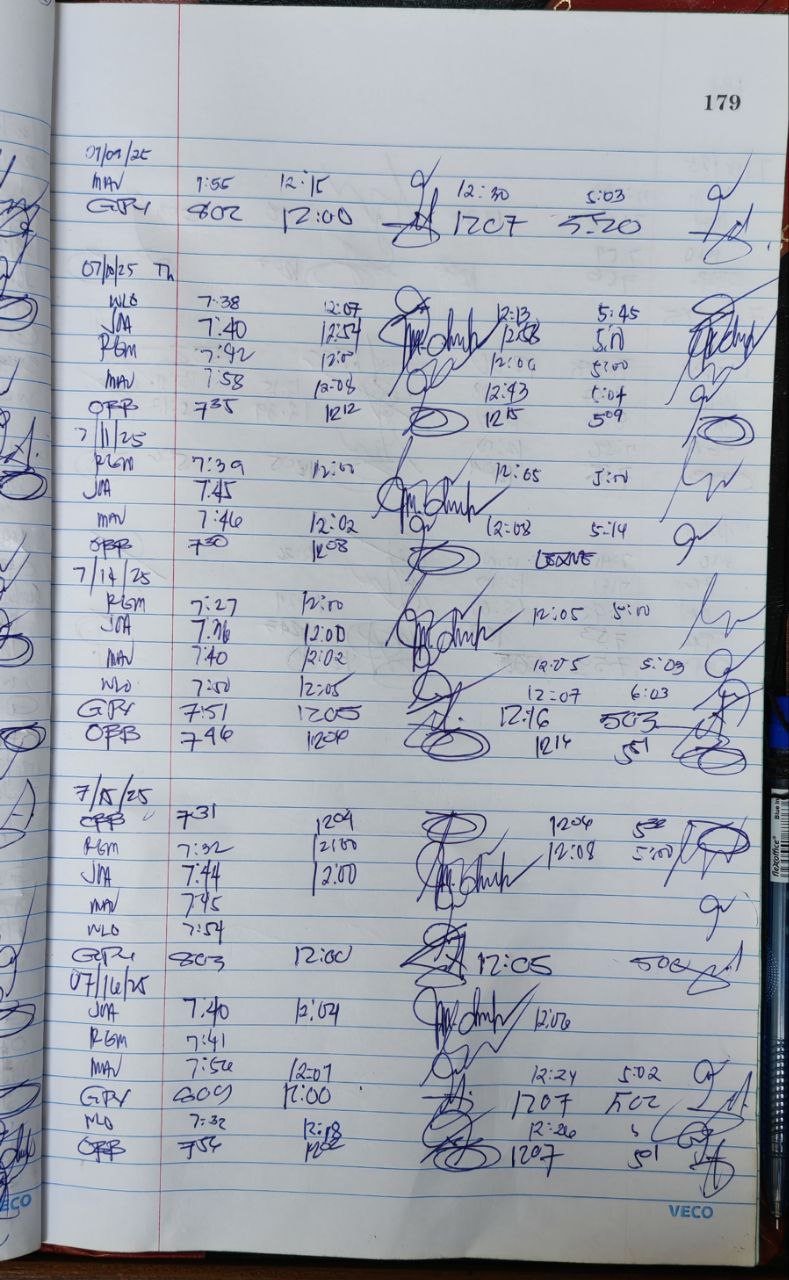 179
07/09/25
MAV 7:55 12:15 12:30 5:03
GPY 802 12:00 1207 5:20
07/10/25 Th
WLO 7:38 12:07 12:13 5:45
JOA 7:40 12:54 12:58
RGM 7:42 5:00
MAV 7:58 12:08 12:43 5:04
OPB 735 1212 1215 509
7/11/25
RGM 7:39 12:00 12:05 5:00
JOA 7:45
MAV 7:46 12:02 12:08 5:14
OPB 730 1208 LEAVE
7/14/25
RGM 7:27 12:00 12:05 5:00
JOA 7:36 12:00
MAV 7:40 12:02 12:05 5:03
WLO 7:50 12:05 12:07 6:03
GPY 7:51 1205 12:16 503
OPB 746 1206 1214 551
7/15/25
OPB 731 1204 1206
RGM 7:32 12:00 12:08 5:00
JOA 7:44 12:00
MAV 7:45
WLO 7:54
GPY 803 12:00 12:05 500
07/16/25
JOA 7:40 12:04 12:06
RGM 7:41
MAV 7:56 12:07 12:24 5:02
GPY 804 12:00 1207 502
WLO 7:32 12:18 12:26
OPB 756 1207 501
VECO
ECO
flexoffice
Blue